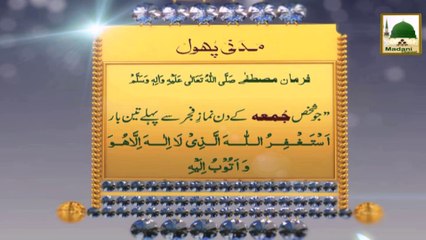 Madani
مدنی پھول
فرمان مصطفٰے صَلَّی اللہُ تَعَالٰی عَلَیْہِ وَاٰلِہٖ وَسَلَّمْ
"جو شخص جُمعہ کے دن نمازِ فجر سے پہلے تین بار
اَسْتَغْفِرُ اللہَ الَّذِیْ لَا اِلٰہَ اِلَّا ھُوَ
وَاَتُوْبُ اِلَیْہِ